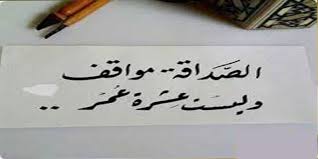 الصَّدَاقة مواقف
وليست عِشرة عُمر ..